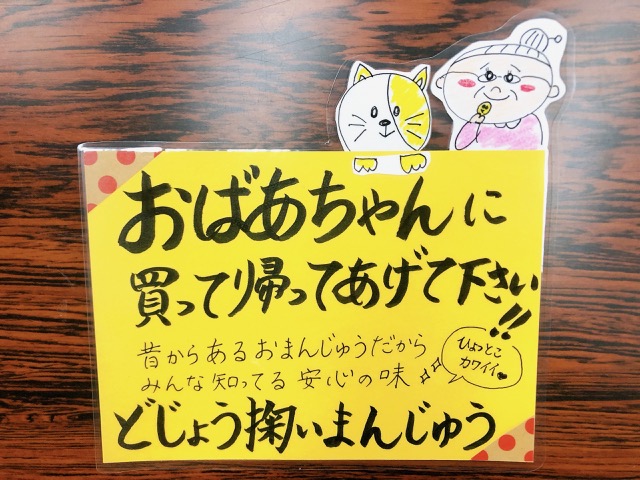 おばあちゃんに
買って帰ってあげて下さい!!
昔からあるおまんじゅうだから
みんな知ってる 安心の味
ひょっとこ
カワイイ♥
どじょう掬いまんじゅう